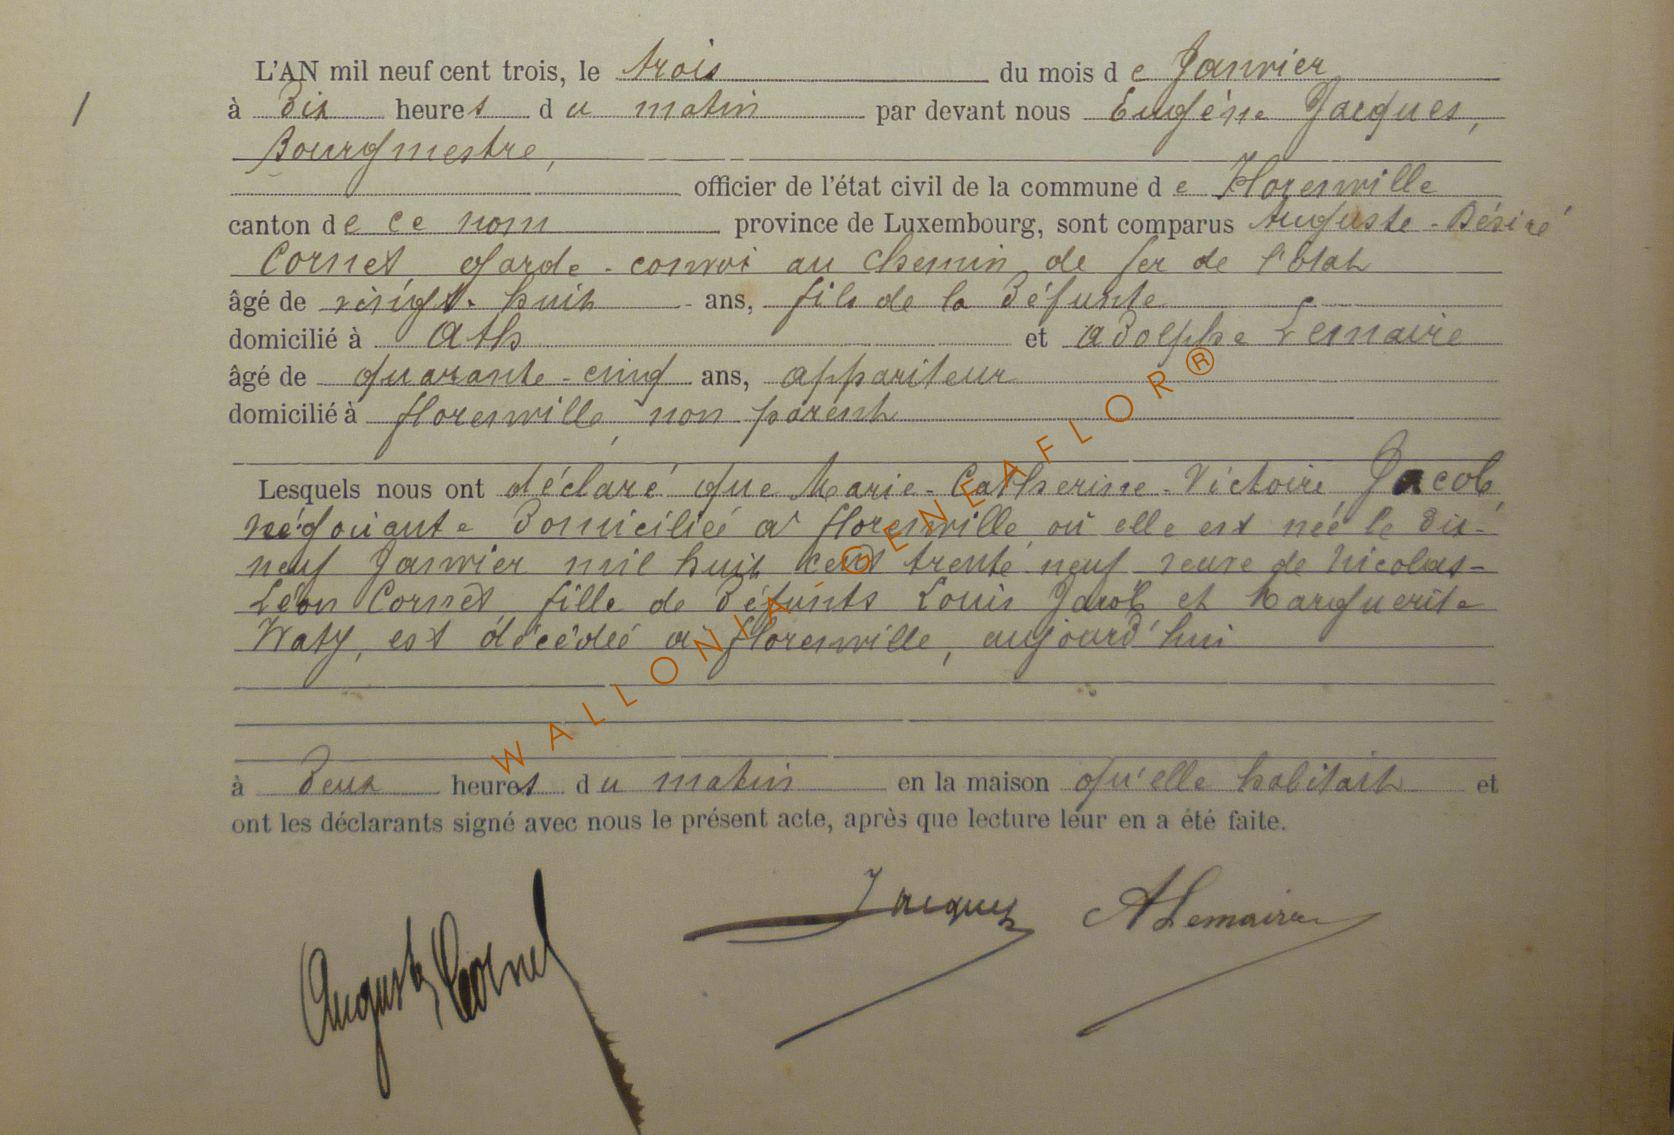 L'AN mil neuf cent trois, le trois du mois de Janvier
/
à Dix heures du matin par devant nous Eugène Jacques,
Bourgmestre,
officier de l'état civil de la commune de Florenville
canton de ce nom province de Luxembourg, sont comparus Auguste-Désiré
Cornet garde-convoi au chemin de fer de l'Etat
âgé de vingt-huit ans, fils de la Défunte
domicilié à Ath et Adolphe Lemaire
âgé de quarante-cinq ans, appariteur
domicilié à florenville, non parent
Lesquels nous ont déclaré que Marie-Catherine-Victoire Jacob
négociante Domiciliée à florenville où elle est née le Dix-
neuf Janvier mil huit cent trente neuf veuve de Nicolas-
Léon Cornet, fille de Défunts Louis Jacob et Marguerite
Waty, est décédée à florenville, aujourd'hui
à Deux heures du matin en la maison qu'elle habitait et
ont les déclarants signé avec nous le présent acte, après que lecture leur en a été faite.
Jacques ALemaire
Auguste Cornet
WALLONIA GENEAFLOR®